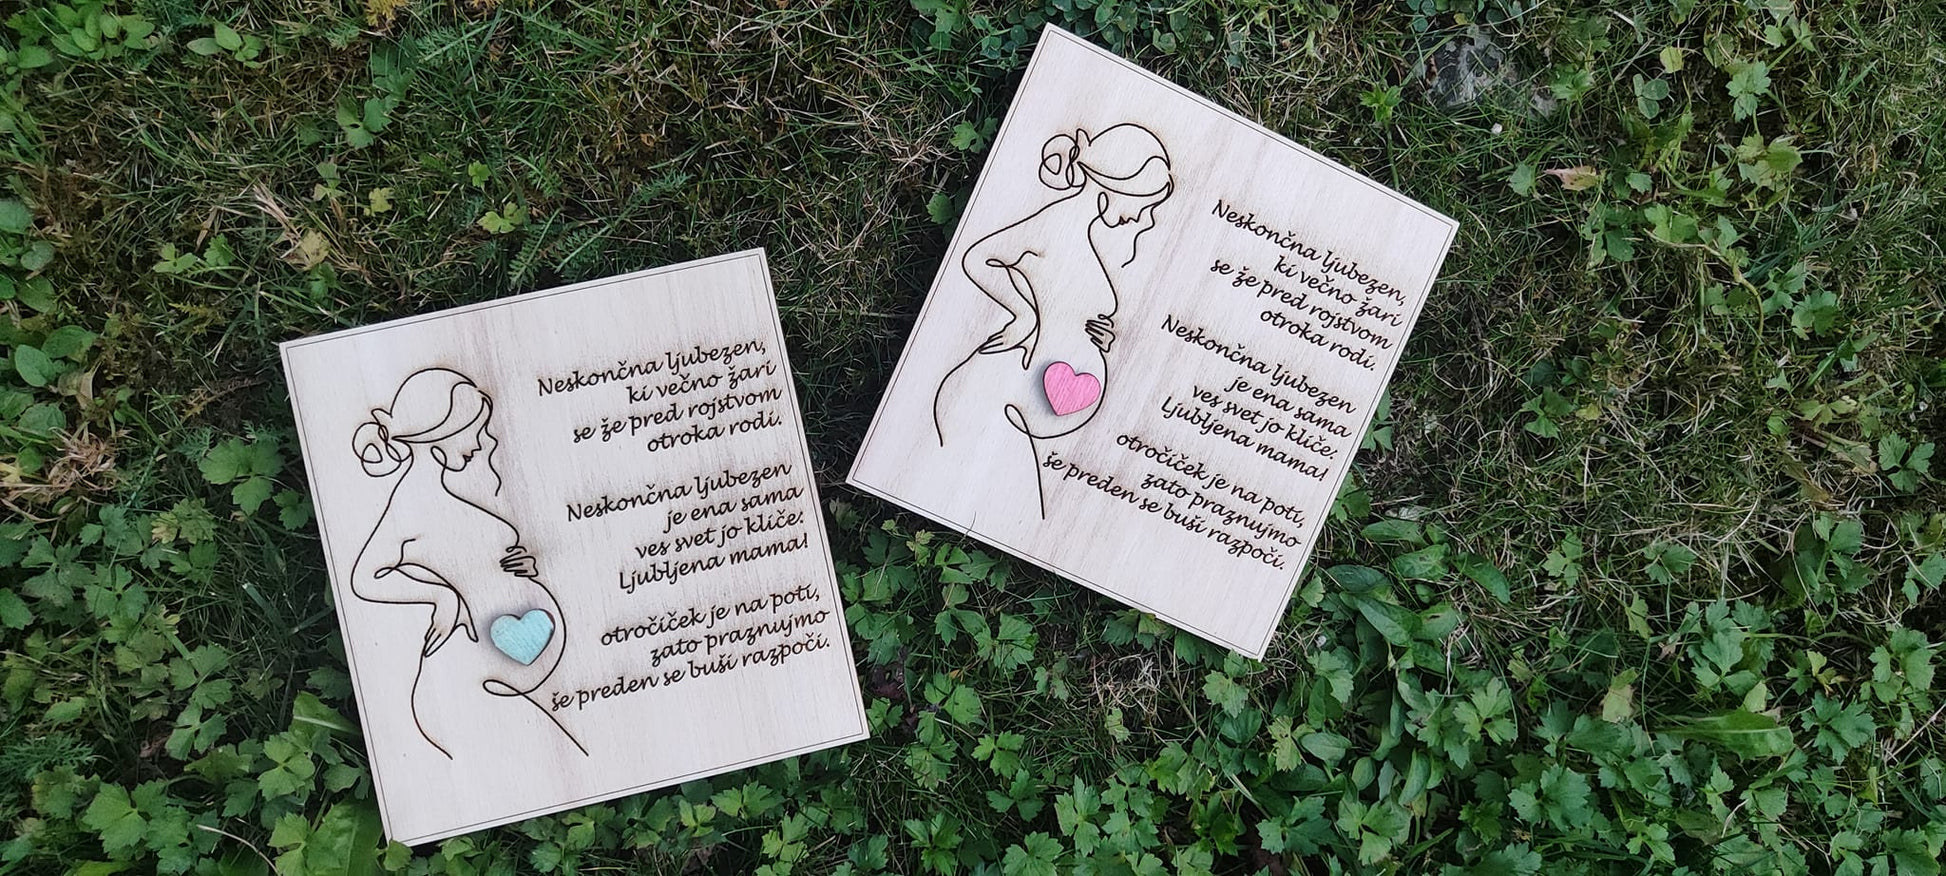 Neskončna ljubezen,
ki večno žari
se že pred rojstvom
otroka rodi.
Neskončna ljubezen
je ena sama
ves svet jo kliče:
Ljubljena mama!
otročiček je na poti,
zato praznujmo
še preden se buši razpoči.
Neskončna ljubezen,
ki večno žari
se že pred rojstvom
otroka rodi.
Neskončna ljubezen
je ena sama
ves svet jo kliče:
Ljubljena mama!
otročiček je na poti,
zato praznujmo
še preden se buši razpoči.